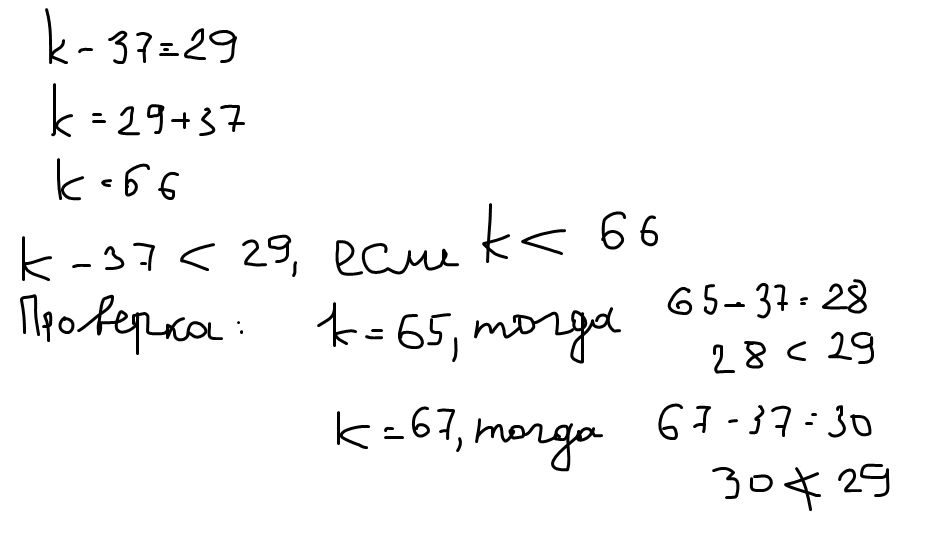 k - 37 = 29
k = 29 + 37
k = 66
k - 37 < 29, если k < 66
Проверка: k = 65, тогда 65 - 37 = 28
28 < 29
k = 67, тогда 67 - 37 = 30
30 ≮ 29